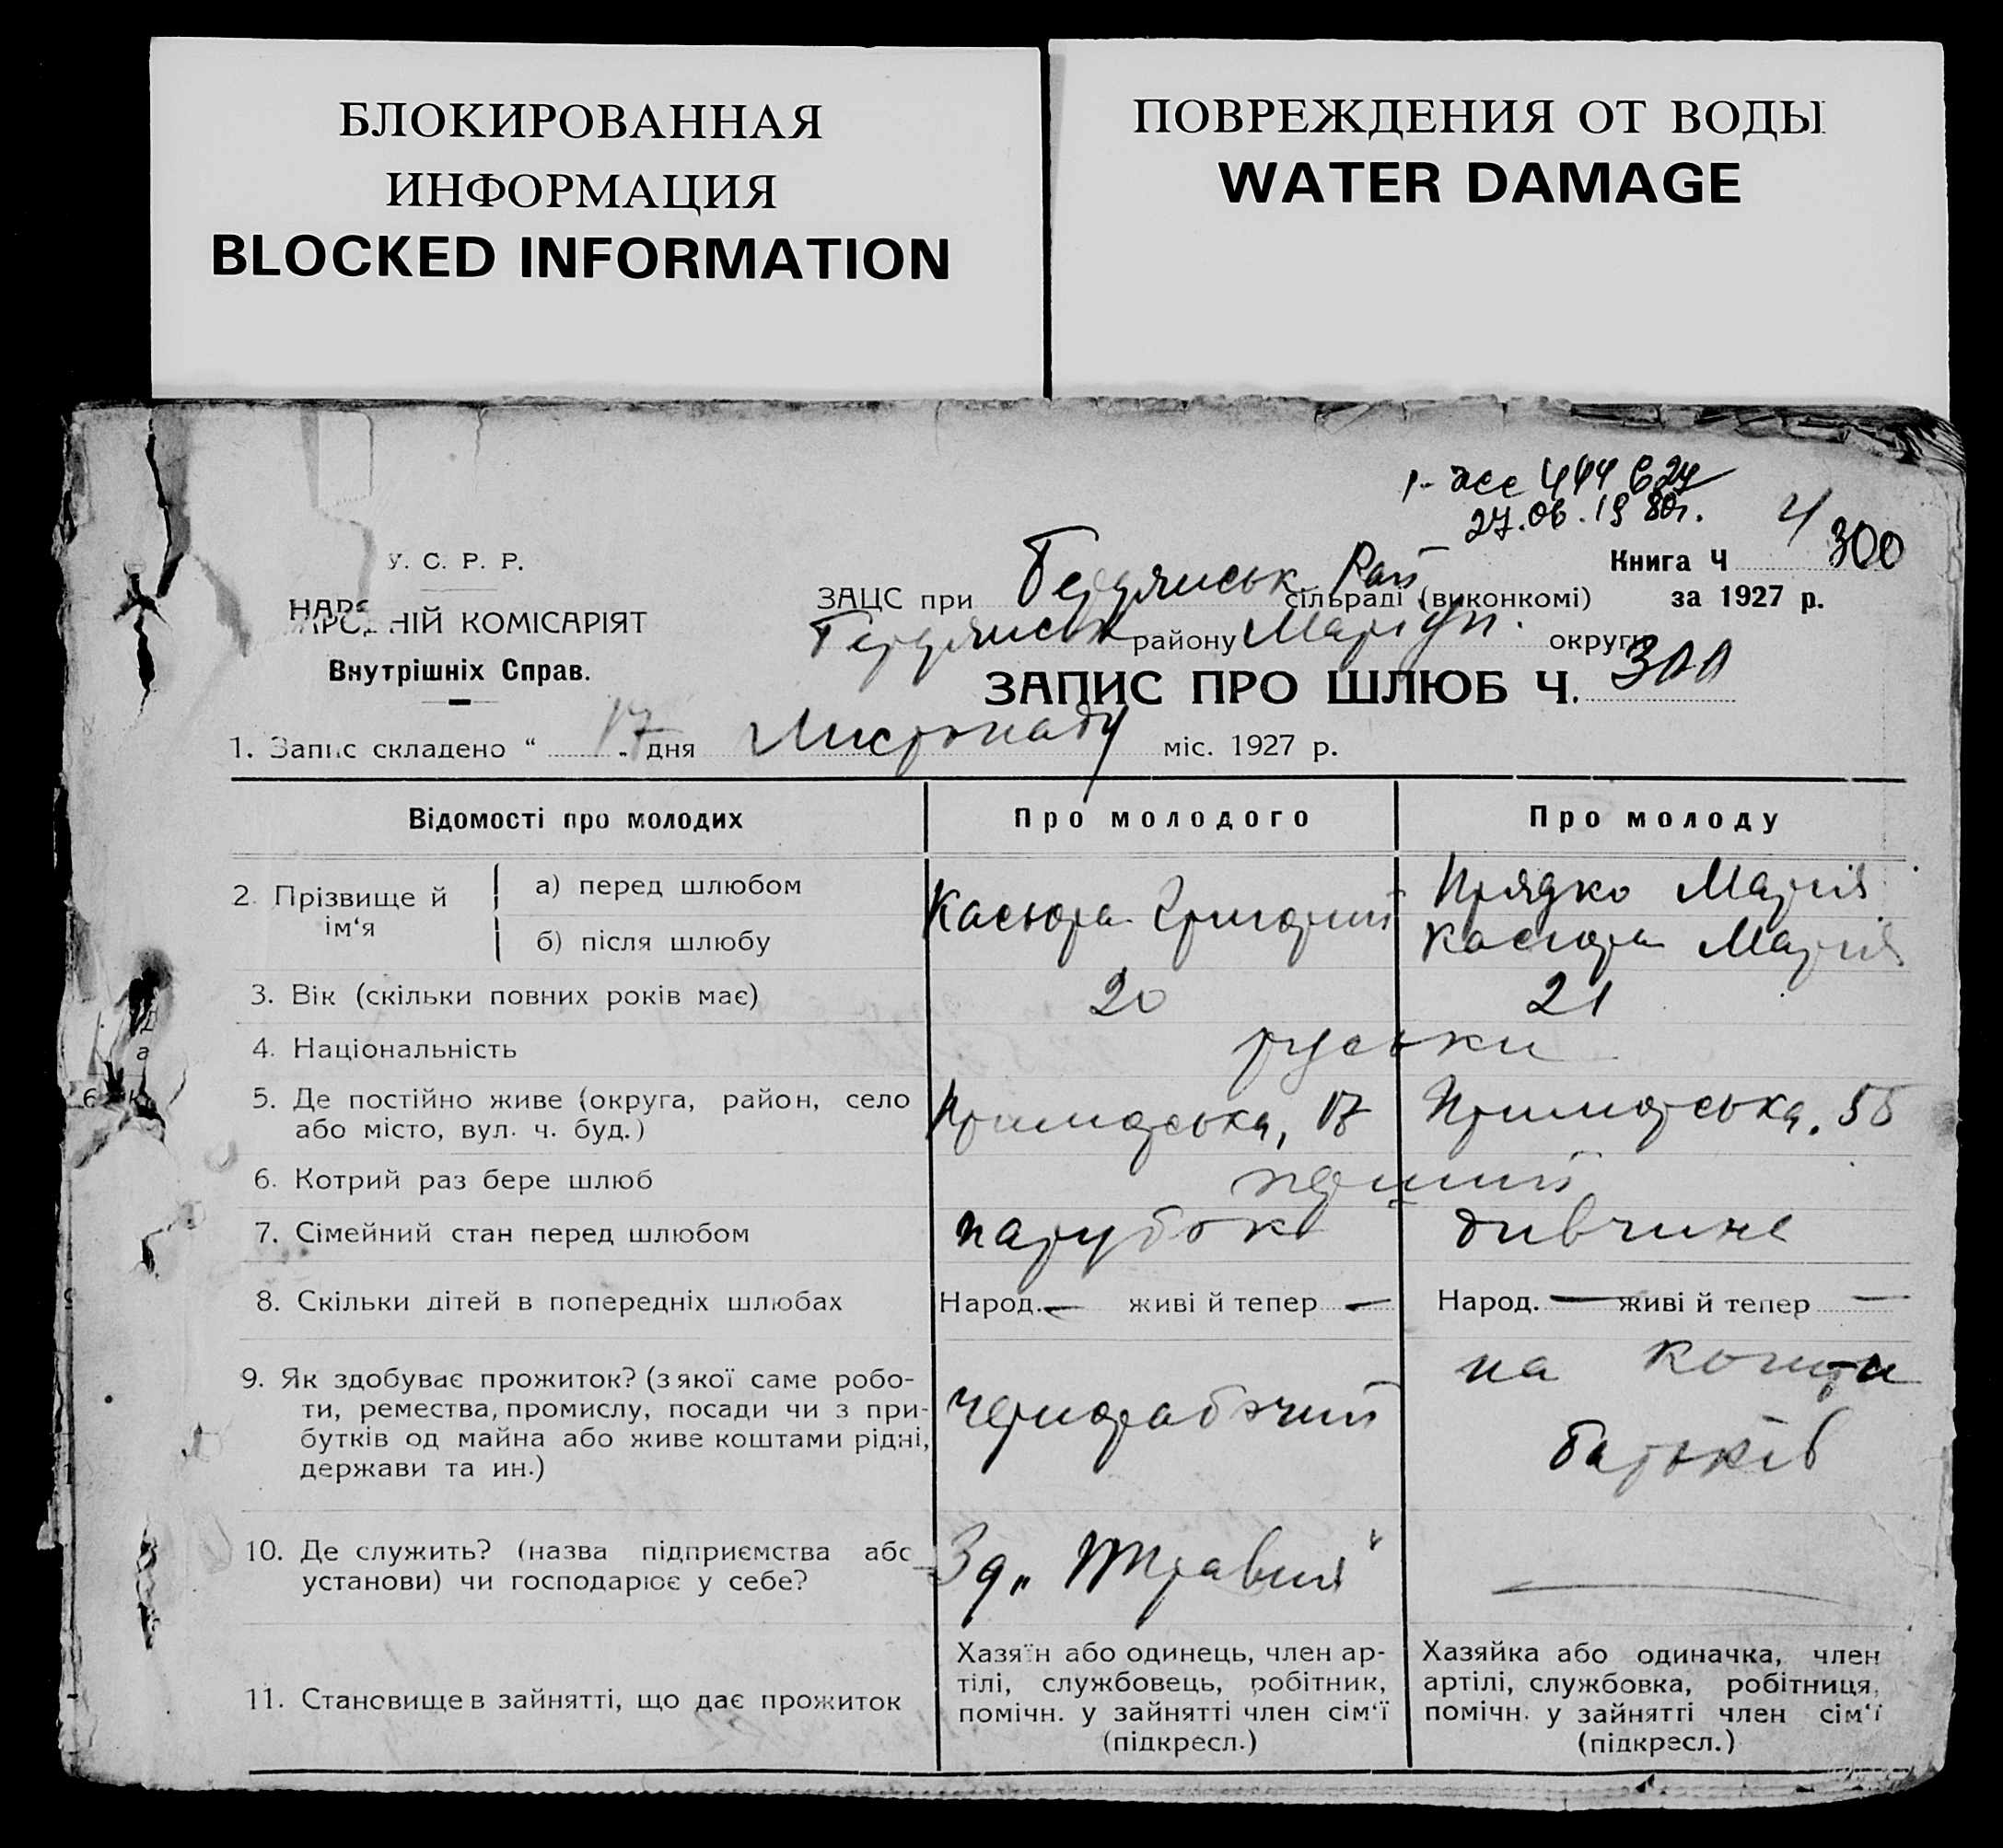 БЛОКИРОВАННАЯ
ИНФОРМАЦИЯ
BLOCKED INFORMATION
ПОВРЕЖДЕНИЯ ОТ ВОДЫ
WATER DAMAGE
27.06.1980г.
У. С. Р. Р.
НАРО НІЙ КОМІСАРІЯТ
Внутрішніх Справ.
Книга Ч 4 300
ЗАЦС при Бердянськ Рай сільраді (виконкомі) за 1927 р.
Бердянськ району Маріуп. округи
ЗАПИС ПРО ШЛЮБ Ч. 300
1. Запис складено “ 17 дня Листопаду міс. 1927 р.
Відомості про молодих Про молодого Про молоду
2. Прізвище й ім‘я
а) перед шлюбом Касюра Григорий Прядко Марія
б) після шлюбу Касюра Марія
3. Вік (скільки повних років має) 20 21
4. Національність руськи
5. Де постійно живе (округа, район, село
або місто, вул. ч. буд.) Приморська, 17 Приморська, 55
6. Котрий раз бере шлюб перший
7. Сімейний стан перед шлюбом парубок дивчина
8. Скільки дітей в попередніх шлюбах Народ. — живі й тепер — Народ. — живі й тепер —
9. Як здобуває прожиток? (з якої саме робо-
ти, ремества, промислу, посади чи з при-
бутків од майна або живе коштами рідні,
держави та ин.)
чернорабочий
на кошти
батьків
10. Де служить? (назва підприємства або
установи) чи господарює у себе?
Зд „1 Травня“ —
11. Становище в зайнятті, що дає прожиток
Хазяїн або одинець, член ар-
тілі, службовець, робітник,
помічн. у зайнятті член сім‘ї
(підкресл.)
Хазяйка або одиначка, член
артілі, службовка, робітниця,
помічн. у зайнятті член сім‘ї
(підкресл.)